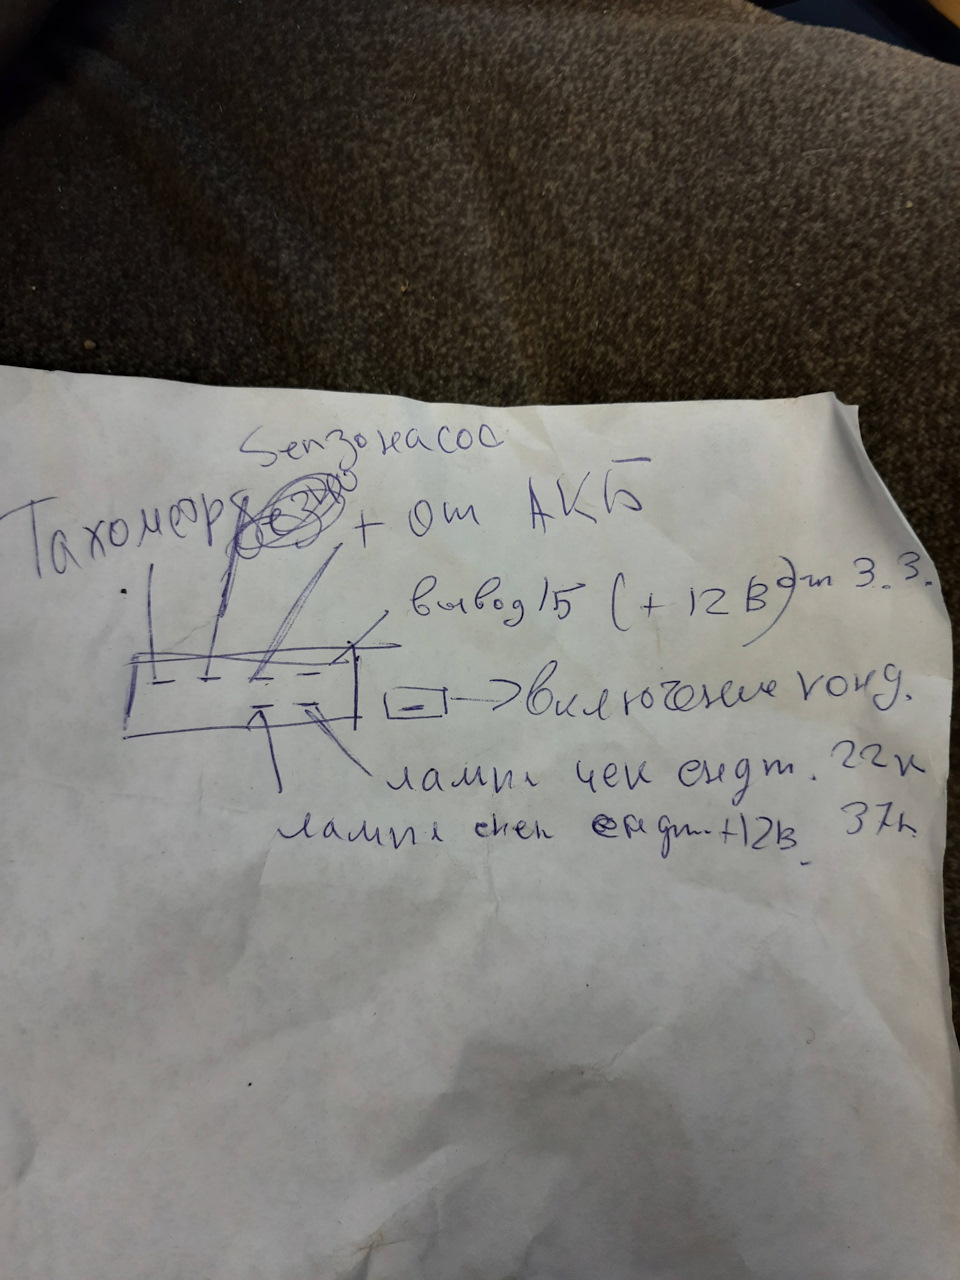 Бензонасос
Тахометр
+ от АКБ
вывод 15 (+ 12 В) от З.З.
включение конд.
лампы чек 22к
лампы +12в 37к